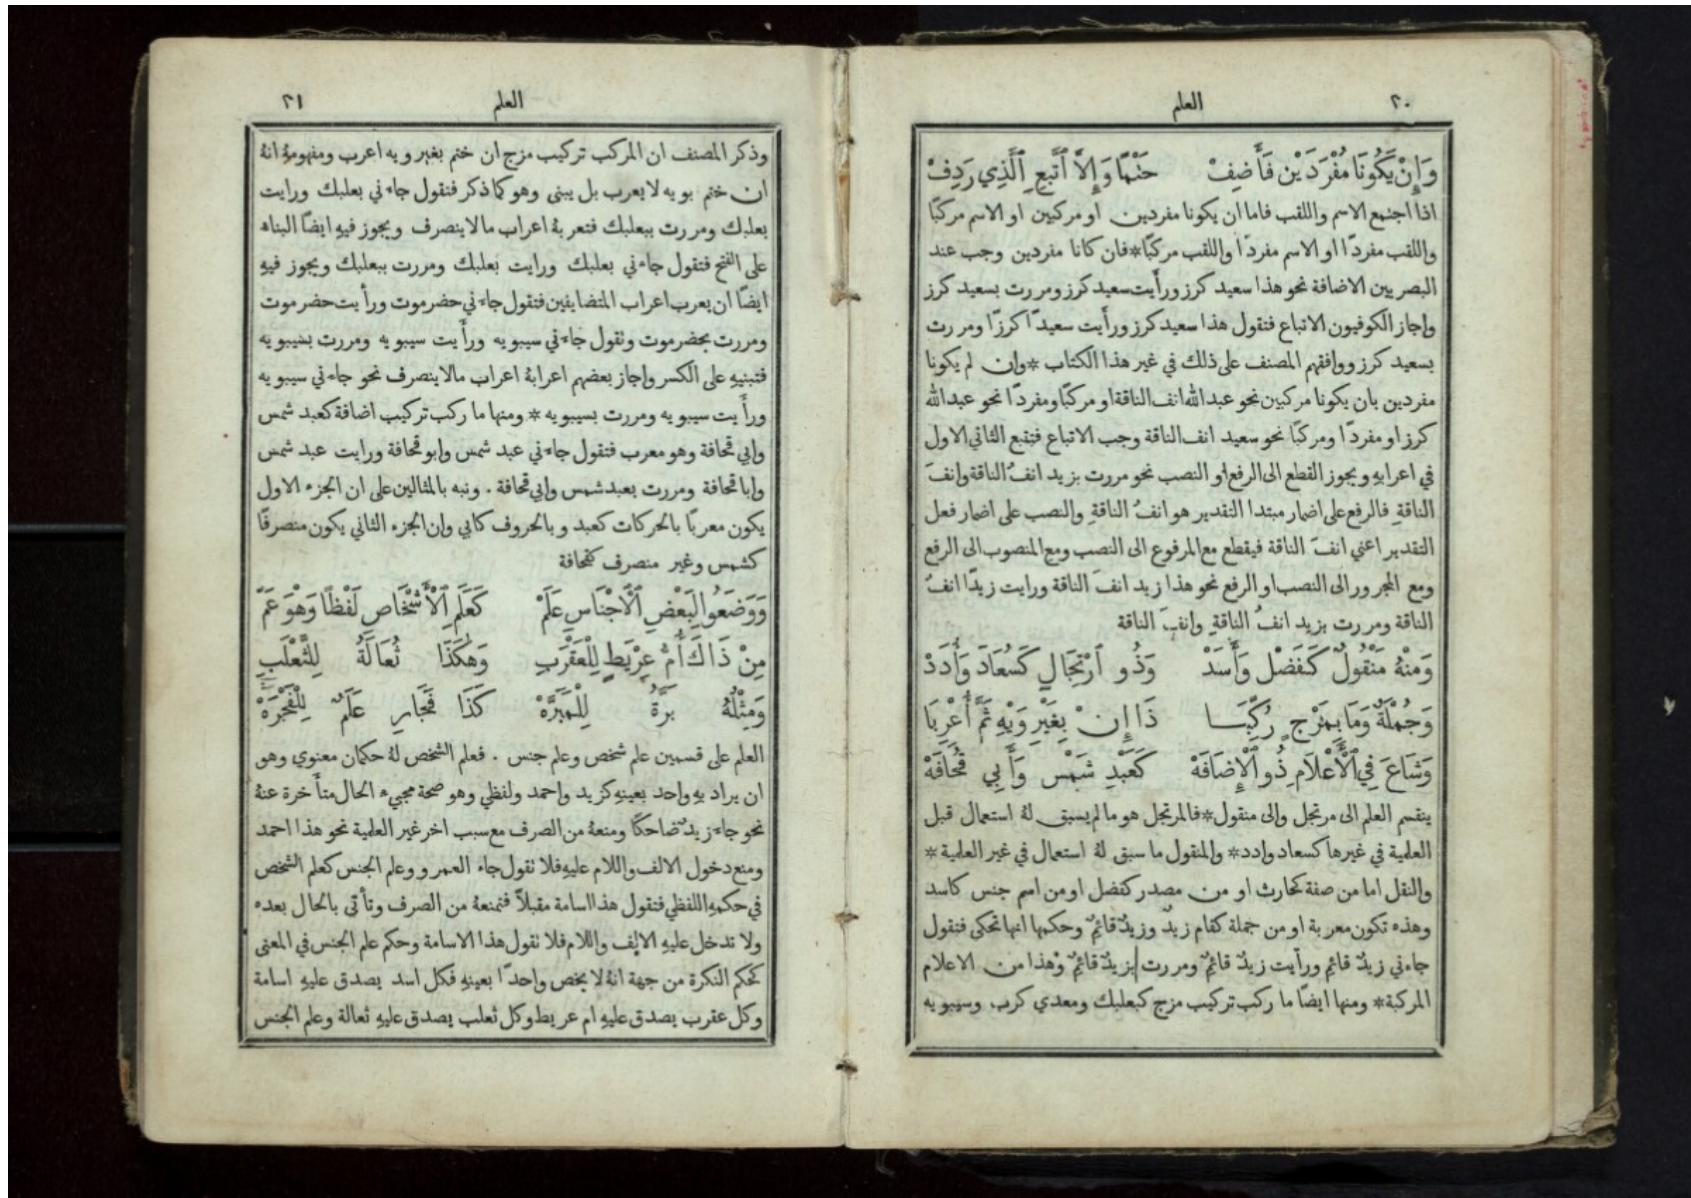 ٢٠ العلم
وَإِنْ يَكُونَا مُفْرَدَيْنِ فَأَضِفْ حَتْمًا وَإِلَّا أَتْبِعِ ٱلَّذِي رَدِفْ
اذا اجتمع الاسم واللقب فاما ان يكونا مفردين او مركبين او الاسم مركبًا
واللقب مفردًا او الاسم مفردًا واللقب مركبًا* فان كانا مفردين وجب عند
البصريين الاضافة نحو هذا سعيد كرز ورأَيت سعيد كرز ومررت بسعيد كرز
واجاز الكوفيون الاتباع فتقول هذا سعيد كرز ورأَيت سعيدًا كرزًا ومررت
بسعيد كرز ووافقهم المصنف على ذلك في غير هذا الكتاب *وان لم يكونا
مفردين بان يكونا مركبين نحو عبد الله انف الناقة او مركبًا ومفردًا نحو عبد الله
كرز او مفردًا ومركبًا نحو سعيد انف الناقة وجب الاتباع فتتبع الثاني الاول
في اعرابهِ ويجوز القطع الى الرفع او النصب نحو مررت بزيد انفُ الناقة وانفَ
الناقةِ فالرفع على اضمار مبتدا التقدير هو انفُ الناقةِ والنصب على اضمار فعل
التقدير اعني انفَ الناقة فيقطع مع المرفوع الى النصب ومع المنصوب الى الرفع
ومع المجرور الى النصب او الرفع نحو هذا زيد انفَ الناقة ورايت زيدًا انفُ
الناقة ومررت بزيد انفُ الناقةِ وانفَ الناقة
وَمِنْهُ مَنْقُولٌ كَفَضْلٍ وَأَسَدْ وَذُو ٱرْتِجَالٍ كَسُعَادَ وَأُدَدْ
وَجُمْلَةٌ وَمَا بِمَزْجٍ رُكِّبَـا ذَا إِنْ بِغَيْرِ وَيْهِ تَمَّ أُعْرِبَا
وَشَاعَ فِي ٱلْأَعْلَامِ ذُو ٱلْإِضَافَهْ كَعَبْدِ شَمْسٍ وَأَبِي قُحَافَهْ
ينقسم العلم الى مرتجل والى منقول* فالمرتجل هو ما لم يسبق لهُ استعمال قبل
العلمية في غيرها كسعاد وادد* والمنقول ما سبق لهُ استعمال في غير العلمية *
والنقل اما من صفة كحارث او من مصدر كفضل او من اسم جنس كاسد
وهذه تكون معربة او من جملة كقام زيدٌ وزيدٌ قائمٌ وحكمها انها تحكى فتقول
جاءني زيدٌ قائم ورأَيت زيدٌ قائمٌ ومررت بزيدٌ قائمٌ وهذا من الاعلام
المركبة* ومنها ايضًا ما ركب تركيب مزج كبعلبك ومعدي كرب وسيبويه
العلم ٢١
وذكر المصنف ان المركب تركيب مزج ان ختم بغير ويه اعرب ومفهومهُ انهُ
ان ختم بويه لا يعرب بل يبنى وهو كما ذكر فتقول جاءني بعلبك ورايت
بعلبك ومررت ببعلبك فتعربهُ اعراب ما لا ينصرف ويجوز فيهِ ايضًا البناء
على الفتح فتقول جاءني بعلبك ورايت بعلبك ومررت ببعلبك ويجوز فيهِ
ايضًا ان يعرب اعراب المتضايفين فتقول جاءني حضرموت ورأَيت حضرموت
ومررت بحضرموت وتقول جاءني سيبويه ورأَيت سيبويه ومررت بسيبويه
فتبنيهِ على الكسر واجاز بعضهم اعرابهُ اعراب ما لا ينصرف نحو جاءني سيبويه
ورأَيت سيبويه ومررت بسيبويه * ومنها ما ركب تركيب اضافة كعبد شمس
وابي قحافة وهو معرب فتقول جاءني عبد شمس وابو قحافة ورايت عبد شمس
وابا قحافة ومررت بعبد شمس وابي قحافة . ونبه بالمثالين على ان الجزء الاول
يكون معربًا بالحركات كعبد وبالحروف كابي وان الجزء الثاني يكون منصرفًا
كشمس وغير منصرف كقحافة
وَوَضَعُوا لِبَعْضِ ٱلْأَجْنَاسِ عَلَمْ كَعَلَمِ ٱلْأَشْخَاصِ لَفْظًا وَهْوَ عَمّْ
مِنْ ذَاكَ أُمُّ عِرْيَطٍ لِلْعَقْرَبِ وَهٰكَذَا ثُعَالَةٌ لِلثَّعْلَبِ
وَمِثْلُهُ بَرَّةُ لِلْمَبَرَّهْ كَذَا فَجَارِ عَلَمٌ لِلْفَجْرَهْ
العلم على قسمين علم شخص وعلم جنس . فعلم الشخص لهُ حكمان معنوي وهو
ان يراد بهِ واحد بعينهِ كزيد واحمد ولفظي وهو صحة مجيء الحال متأَخرة عنهُ
نحو جاء زيدٌ ضاحكًا ومنعهُ من الصرف مع سبب اخر غير العلمية نحو هذا احمد
ومنع دخول الالف واللام عليهِ فلا تقول جاء العمرو وعلم الجنس كعلم الشخص
في حكمهِ اللفظي فتقول هذا اسامة مقبلًا فتمنعهُ من الصرف وتأتي بالحال بعده
ولا تدخل عليهِ الالف واللام فلا تقول هذا الاسامة وحكم علم الجنس في المعنى
كحكم النكرة من جهة انهُ لا يخص واحدًا بعينهِ فكل اسد يصدق عليهِ اسامة
وكل عقرب يصدق عليهِ ام عريط وكل ثعلب يصدق عليهِ ثعالة وعلم الجنس